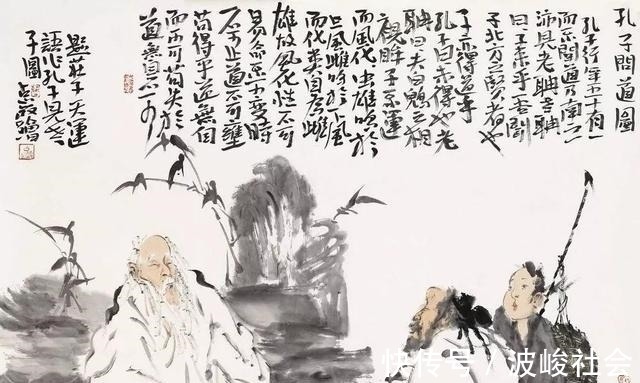 孔子問道圖
孔子行年五十有一
而不聞道乃南之
沛見老聃老聃
曰子來乎吾聞
子北方之賢者也
子亦得道乎
孔子曰未得也老
聃曰夫白鶂之相
視眸子不運
而風化虫雄鳴於
上風雌鳴於下風
而化類自爲雌
雄故風化性不可
易命不可變時
不可止道不可壅
苟得乎道無自
而不可苟失於
道無自可
題莊子天運
語作孔子見老
子圖
快传号 / 波峻社会